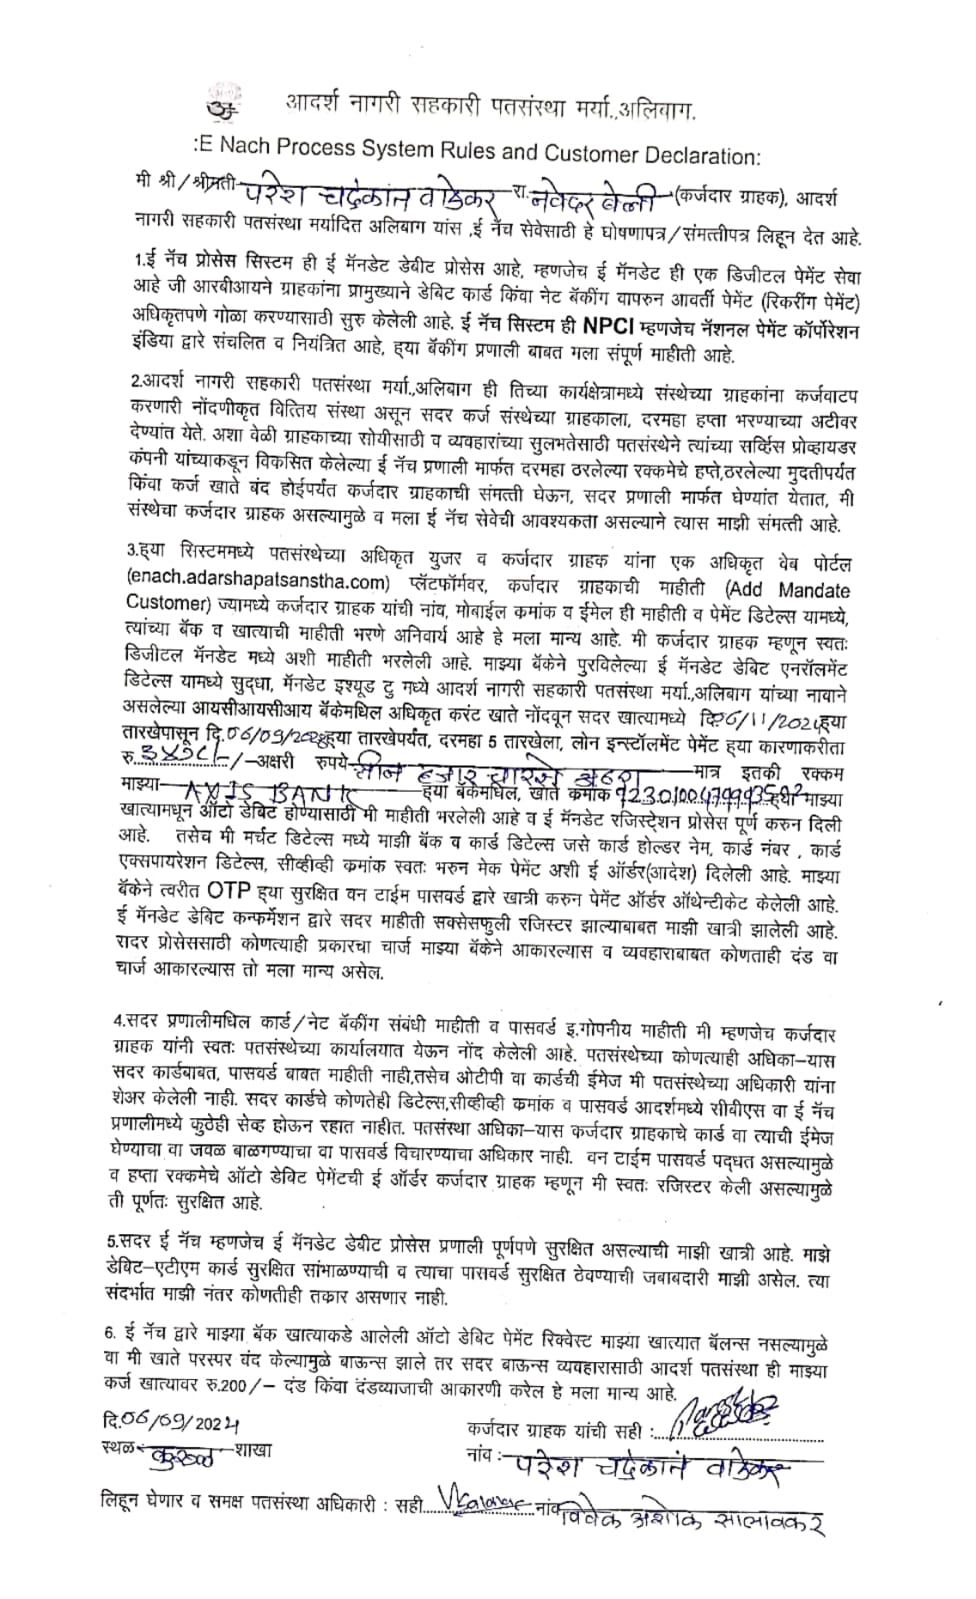 आदर्श नागरी सहकारी पतसंस्था मर्या.,अलिबाग.
:E Nach Process System Rules and Customer Declaration:
मी श्री/श्रीमती परेश चंद्रकांत वाडेकर रा. नवेदर बेली (कर्जदार ग्राहक), आदर्श
नागरी सहकारी पतसंस्था मर्यादित अलिबाग यांस ,ई नॅच सेवेसाठी हे घोषणापत्र/संमत्तीपत्र लिहून देत आहे.
1.ई नॅच प्रोसेस सिस्टम ही ई मॅनडेट डेबीट प्रोसेस आहे, म्हणजेच ई मॅनडेट ही एक डिजीटल पेमेंट सेवा
आहे जी आरबीआयने ग्राहकांना प्रामुख्याने डेबिट कार्ड किंवा नेट बॅकींग वापरुन आवर्ती पेमेंट (रिकरींग पेमेंट)
अधिकृतपणे गोळा करण्यासाठी सुरु केलेली आहे. ई नॅच सिस्टम ही NPCI म्हणजेच नॅशनल पेमेंट कॉर्पोरेशन
इंडिया द्वारे संचलित व नियंत्रित आहे, ह्या बॅकींग प्रणाली बाबत मला संपूर्ण माहीती आहे.
2.आदर्श नागरी सहकारी पतसंस्था मर्या.,अलिबाग ही तिच्या कार्यक्षेत्रामध्ये संस्थेच्या ग्राहकांना कर्जवाटप
करणारी नोंदणीकृत वित्तिय संस्था असून सदर कर्ज संस्थेच्या ग्राहकाला, दरमहा हप्ता भरण्याच्या अटीवर
देण्यांत येते. अशा वेळी ग्राहकाच्या सोयीसाठी व व्यवहारांच्या सुलभतेसाठी पतसंस्थेने त्यांच्या सर्व्हिस प्रोव्हायडर
कंपनी यांच्याकडून विकसित केलेल्या ई नॅच प्रणाली मार्फत दरमहा ठरलेल्या रक्कमेचे हप्ते,ठरलेल्या मुदतीपर्यंत
किंवा कर्ज खाते बंद होईपर्यंत कर्जदार ग्राहकाची संमत्ती घेऊन, सदर प्रणाली मार्फत घेण्यांत येतात, मी
संस्थेचा कर्जदार ग्राहक असल्यामुळे व मला ई नॅच सेवेची आवश्यकता असल्याने त्यास माझी संमत्ती आहे.
3.ह्या सिस्टममध्ये पतसंस्थेच्या अधिकृत युजर व कर्जदार ग्राहक यांना एक अधिकृत वेब पोर्टल
(enach.adarshapatsanstha.com) प्लॅटफॉर्मवर, कर्जदार ग्राहकाची माहीती (Add Mandate
Customer) ज्यामध्ये कर्जदार ग्राहक यांची नांव, मोबाईल कमांक व ईमेल ही माहीती व पेमेंट डिटेल्स यामध्ये,
त्यांच्या बॅक व खात्याची माहीती भरणे अनिवार्य आहे हे मला मान्य आहे. मी कर्जदार ग्राहक म्हणून स्वतः
डिजीटल मॅनडेट मध्ये अशी माहीती भरलेली आहे. माझ्या बॅकेने पुरविलेल्या ई मॅनडेट डेबिट एनरॉलमेंट
डिटेल्स यामध्ये सुद्धा, मॅनडेट इश्यूड टु मध्ये आदर्श नागरी सहकारी पतसंस्था मर्या.,अलिबाग यांच्या नावाने
असलेल्या आयसीआयसीआय बॅकेमधिल अधिकृत करंट खाते नोंदवून सदर खात्यामध्ये दि. ह्या
तारखेपासून दि. ह्या तारखेपर्यंत, दरमहा 5 तारखेला, लोन इन्स्टॉलमेंट पेमेंट ह्या कारणाकरीता
रु. 3418/- /-अक्षरी रुपये तीन हजार चारशे अठरा मात्र इतकी रक्कम
माझ्या AXIS BANK ह्या बॅकेमधिल, खाते कमांक ह्या माझ्या
खात्यामधून ऑटो डेबिट होण्यासाठी मी माहीती भरलेली आहे व ई मॅनडेट रजिस्ट्रेशन प्रोसेस पूर्ण करुन दिली
आहे. तसेच मी मर्चंट डिटेल्स मध्ये माझी बॅक व कार्ड डिटेल्स जसे कार्ड होल्डर नेम, कार्ड नंबर , कार्ड
एक्सपायरेशन डिटेल्स, सीव्हीव्ही कमांक स्वतः भरुन मेक पेमेंट अशी ई ऑर्डर(आदेश) दिलेली आहे. माझ्या
बॅकेने त्वरीत OTP ह्या सुरक्षित वन टाईम पासवर्ड द्वारे खात्री करुन पेमेंट ऑर्डर ऑथेन्टीकेट केलेली आहे.
ई मॅनडेट डेबिट कन्फर्मेशन द्वारे सदर माहीती सक्सेसफुली रजिस्टर झाल्याबाबत माझी खात्री झालेली आहे.
रादर प्रोसेससाठी कोणत्याही प्रकारचा चार्ज माझ्या बॅकेने आकारल्यास व व्यवहाराबाबत कोणताही दंड वा
चार्ज आकारल्यास तो मला मान्य असेल.
4.सदर प्रणालीमधिल कार्ड/नेट बॅकींग संबंधी माहीती व पासवर्ड इ.गोपनीय माहीती मी म्हणजेच कर्जदार
ग्राहक यांनी स्वतः पतसंस्थेच्या कार्यालयात येऊन नोंद केलेली आहे. पतसंस्थेच्या कोणत्याही अधिका–यास
सदर कार्डबाबत, पासवर्ड बाबत माहीती नाही,तसेच ओटीपी वा कार्डची ईमेज मी पतसंस्थेच्या अधिकारी यांना
शेअर केलेली नाही. सदर कार्डचे कोणतेही डिटेल्स,सीव्हीव्ही कमांक व पासवर्ड आदर्शमध्ये सीबीएस वा ई नॅच
प्रणालीमध्ये कुठेही सेव्ह होऊन रहात नाहीत. पतसंस्था अधिका–यास कर्जदार ग्राहकाचे कार्ड वा त्याची ईमेज
घेण्याचा वा जवळ बाळगण्याचा वा पासवर्ड विचारण्याचा अधिकार नाही. वन टाईम पासवर्ड पद्धत असल्यामुळे
व हप्ता रक्कमेचे ऑटो डेबिट पेमेंटची ई ऑर्डर कर्जदार ग्राहक म्हणून मी स्वतः रजिस्टर केली असल्यामुळे
ती पूर्णतः सुरक्षित आहे.
5.सदर ई नॅच म्हणजेच ई मॅनडेट डेबीट प्रोसेस प्रणाली पूर्णपणे सुरक्षित असल्याची माझी खात्री आहे. माझे
डेबिट–एटीएम कार्ड सुरक्षित सांभाळण्याची व त्याचा पासवर्ड सुरक्षित ठेवण्याची जबाबदारी माझी असेल. त्या
संदर्भात माझी नंतर कोणतीही तकार असणार नाही.
6. ई नॅच द्वारे माझ्या बॅक खात्याकडे आलेली ऑटो डेबिट पेमेंट रिक्वेस्ट माझ्या खात्यात बॅलन्स नसल्यामुळे
वा मी खाते परस्पर बंद केल्यामुळे बाऊन्स झाले तर सदर बाऊन्स व्यवहारासाठी आदर्श पतसंस्था ही माझ्या
कर्ज खात्यावर रु.200/– दंड किंवा दंडव्याजाची आकारणी करेल हे मला मान्य आहे.
दि.06/09/2024 कर्जदार ग्राहक यांची सही :
स्थळ कुरुळ शाखा नांव : परेश चंद्रकांत वाडेकर
लिहून घेणार व समक्ष पतसंस्था अधिकारी : सही नांव विवेक अशोक सालावकर